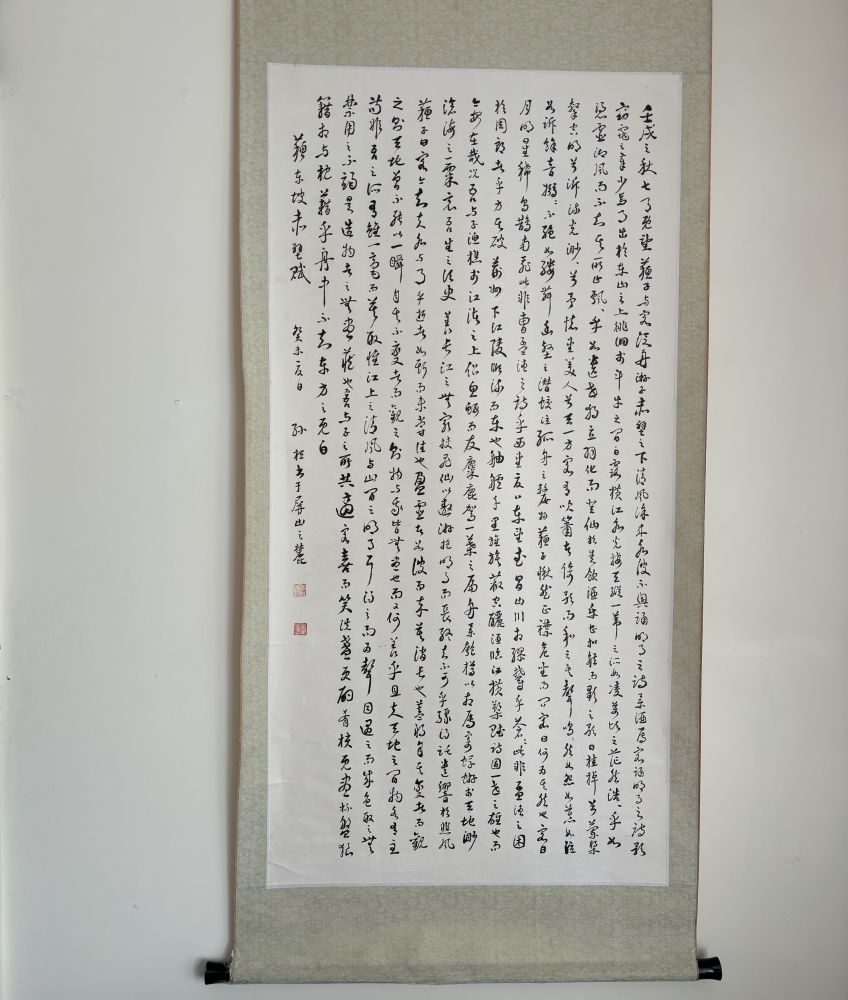 壬戌之秋七月既望蘇子与客泛舟游于赤壁之下清风徐来水波不興誦明月之詩举酒属客誦明月之詩歌
窈窕之章少焉月出於东山之上徘徊於斗牛之間白露横江水光接天縱一葦之所如凌萬頃之茫然浩浩乎如
憑虛御風而不知其所止飄飄乎如遺世独立羽化而登仙於是飲酒樂甚扣舷而歌之歌曰桂棹兮蘭槳
擊空明兮泝流光渺渺兮予懷望美人兮天一方客有吹簫者倚歌而和之其聲嗚嗚然如怨如慕如泣
如訴餘音嫋嫋不絕如縷舞幽壑之潛蛟泣孤舟之嫠婦蘇子愀然正襟危坐而問客曰何为其然也客曰
月明星稀烏鵲南飛此非曹孟德之詩乎西望夏口東望武昌山川相繆鬱乎蒼蒼此非孟德之困
於周郎者乎方其破荆州下江陵順流而東也舳艫千里旌旗蔽空釃酒臨江横槊賦詩固一世之雄也而
今安在哉况吾与子漁樵於江渚之上侶魚蝦而友麋鹿駕一葉之扁舟举匏樽以相属寄蜉蝣於天地渺
滄海之一粟哀吾生之須臾羡长江之無窮挾飛仙以遨游抱明月而長終知不可乎驟得託遺響於悲风
蘇子曰客亦知夫水与月乎逝者如斯而未嘗往也盈虛者如彼而卒莫消長也蓋將自其變者而觀
之則天地曾不能以一瞬自其不變者而觀之則物与我皆無盡也而又何羡乎且夫天地之間物各有主
苟非吾之所有雖一毫而莫取惟江上之清风与山間之明月耳得之而为聲目遇之而成色取之無
禁用之不竭是造物者之無盡藏也吾与子之所共適客喜而笑洗盞更酌肴核既盡杯盤狼
籍相与枕藉乎舟中不知东方之既白
蘇东坡赤壁赋 癸未夏日 孙 书于屏山之麓